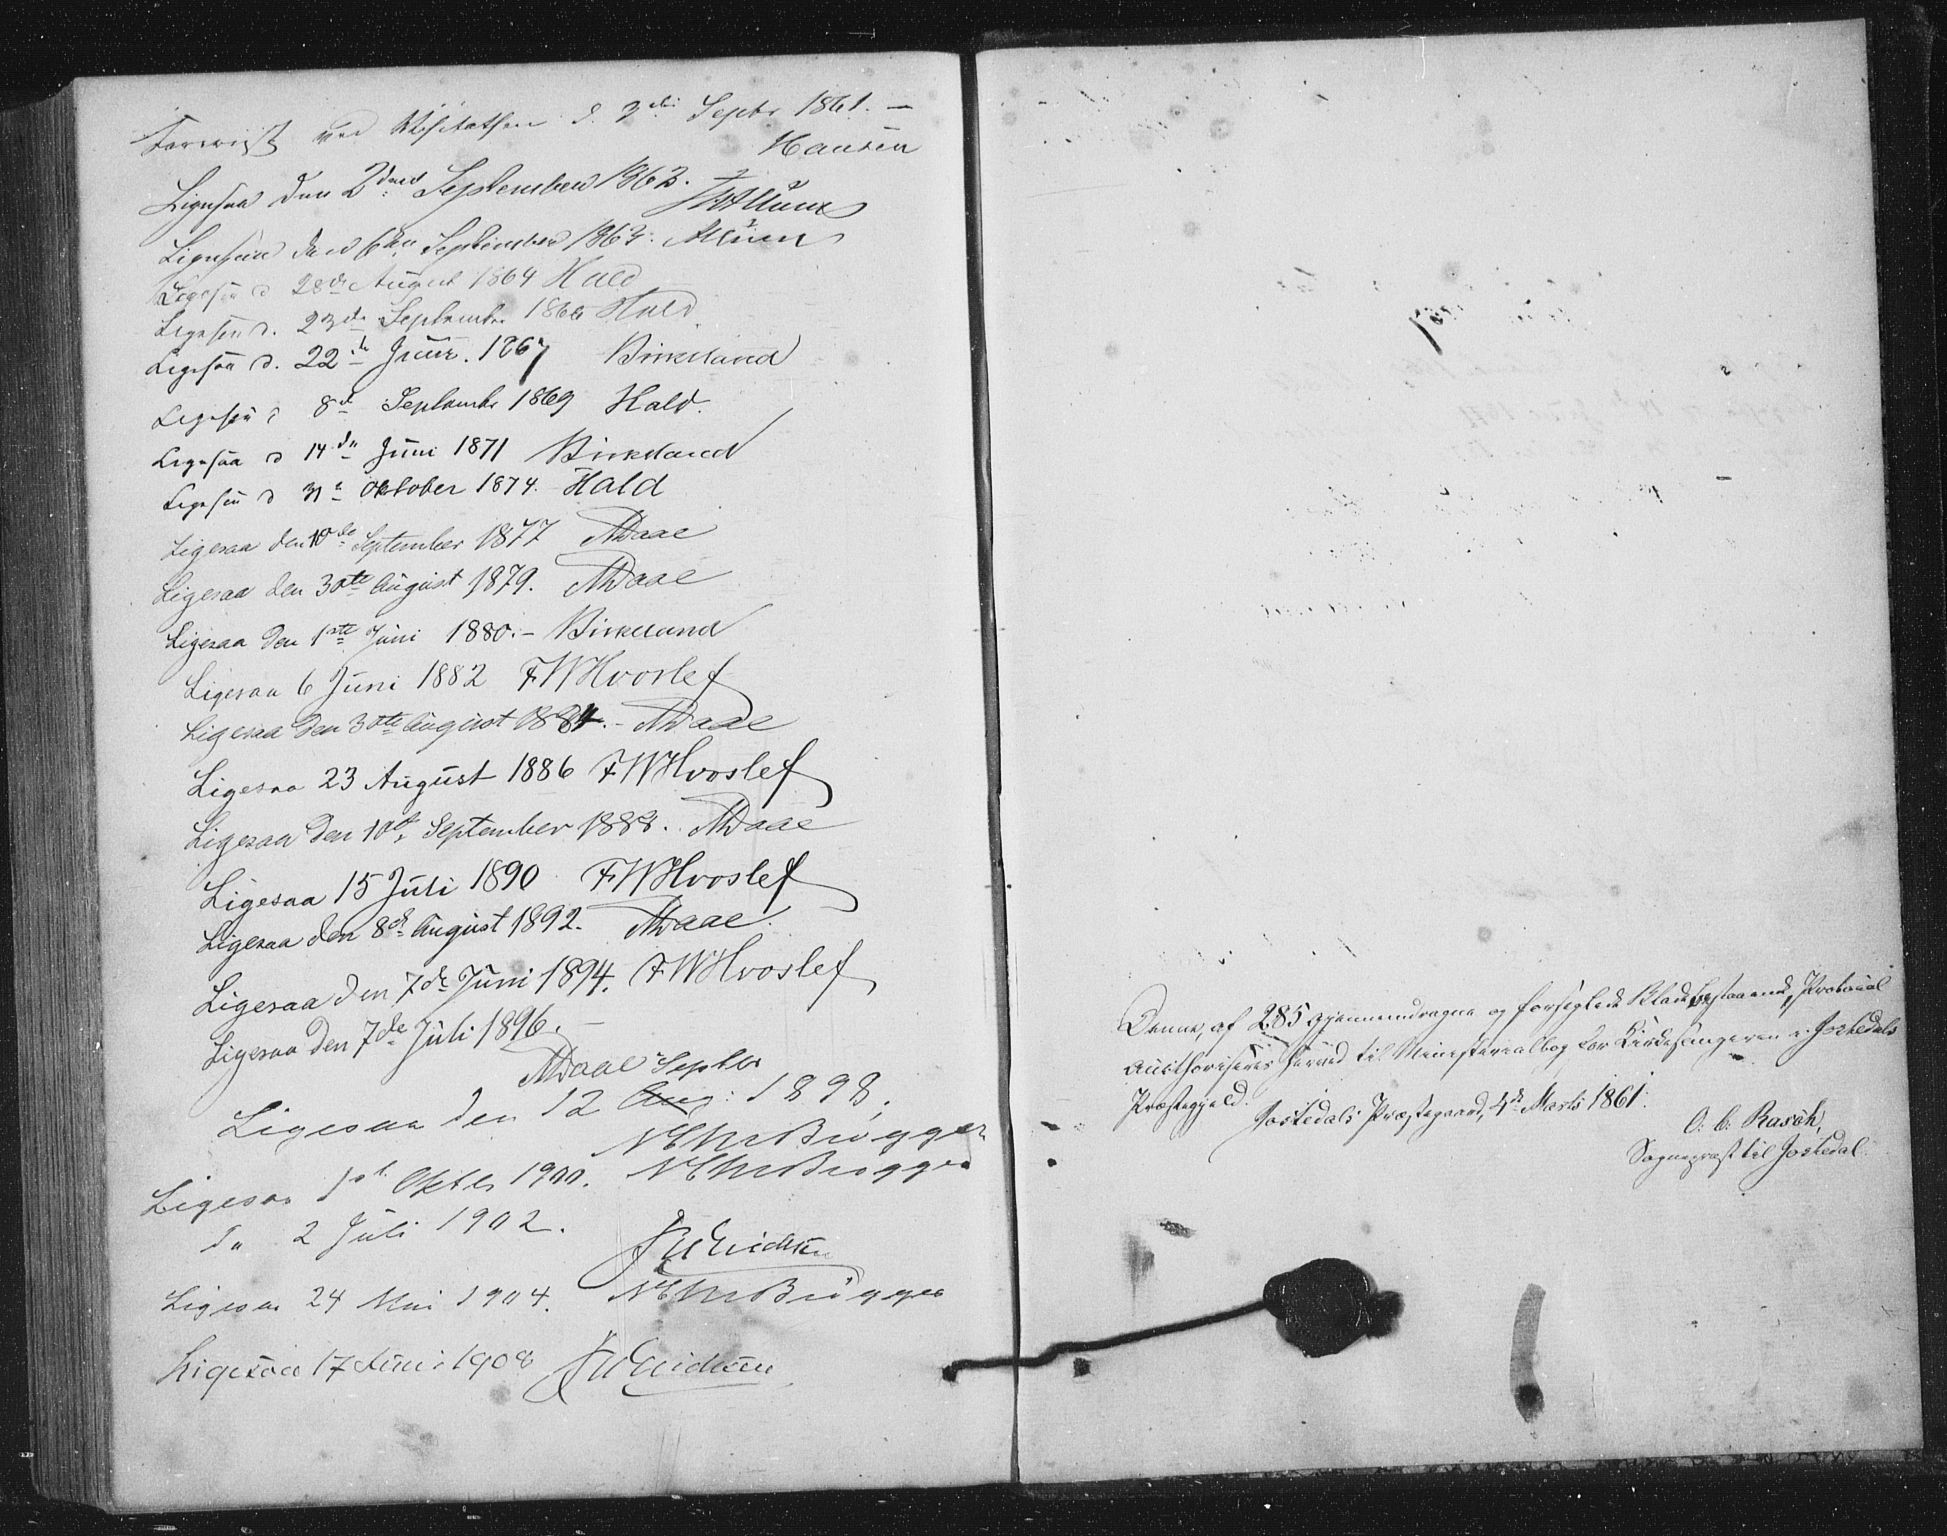 Forevist ved Visitatsen d. 3die Septbr 1861. –
Hansen
Ligesaa den 2den September 1862.
Ligesaa den 6te September 1863.
Ligesaa d 28de August 1864 Hald
Ligesaa d. 23de September 1866 Hald
Ligesaa d. 22de Juni. 1867 Birkeland
Ligesaa d 8de September 1869 Hald.
Ligesaa d 14de Juni 1871 Birkeland
Ligesaa d 31te Oktober 1874. Hald
Ligesaa den 10de September 1877 ADaae
Ligesaa den 30te August 1879. ADaae
Ligesaa den 1ste Juni 1880. – Birkeland
Ligesaa 6 Juni 1882 FWHvoslef
Ligesaa den 30te August 1884. – ADaae
Ligesaa 23 August 1886 FWHvoslef
Ligesaa den 10de September 1888. ADaae
Ligesaa 15 Juli 1890 FWHvoslef
Ligesaa den 8de August 1892. ADaae.
Ligesaa den 7de Juni 1894. FWHvoslef
Ligesaa den 7de Juli 1896. –
ADaae
Septbr
Ligesaa den 12 Aug: 1898.
Brügger
Ligesaa 1st Oktbr 1900. Brügger
do 2 Juli 1902.
JWEriksen
Ligesaa 24 Mai 1904. Brügger
Ligesaa 17 Juni 1908 JWEriksen
Denne, af 285 gjennemdragne og forseglede Blade bestaaende, Protocol
authoriseres herved til Ministerialbog for Kirkesangeren i Jostedals
Præstegjeld.
Jostedals Præstegaard, 4de Marts 1861.
O. C. Rasch,
Sognepræst til Jostedal.